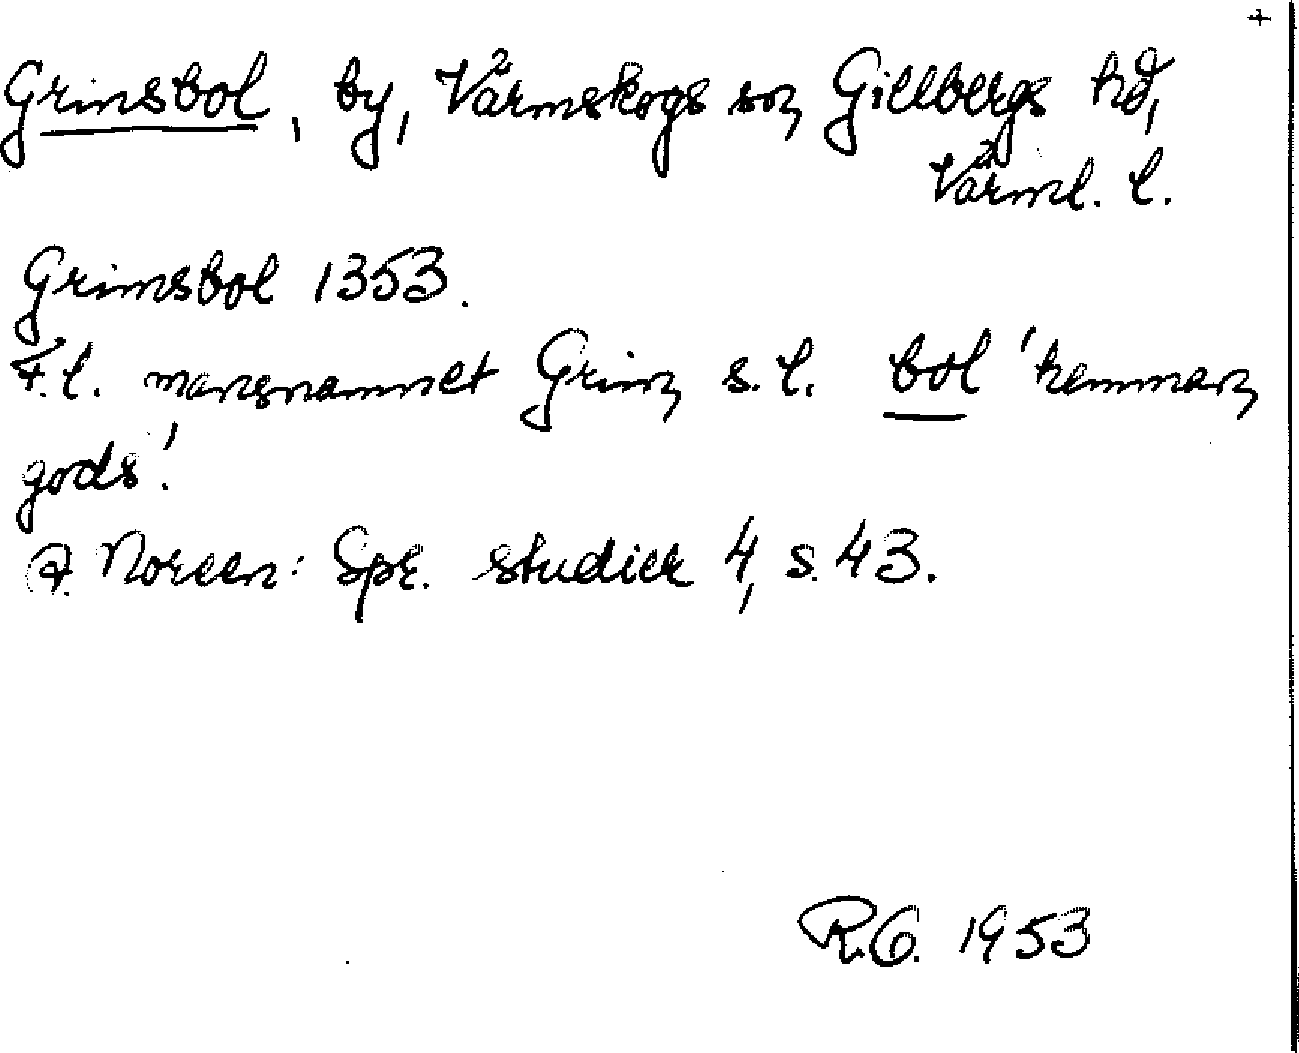 +
Grinsbol, by, Värmskogs sn, Gillbergs hd,
Värml. l.
Grimsbol 1353.
F.l. mansnamnet Grim, s.l. bol 'hemman,
gods'.
A. Noreen: Spr. studier 4, s. 43.
R.G. 1953